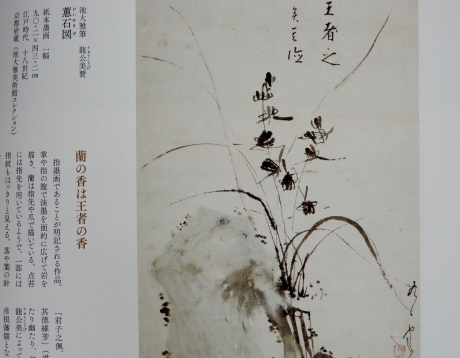 池大雅筆　龍公美賛
蕙石図
けいせきず
紙本墨画　一幅
九〇・二×四三・二㎝
江戸時代　十八世紀
京都府蔵（池大雅美術館コレクション）
蘭の香は王者の香
指墨画であることが明記される作品。
掌や指の腹で淡墨を面的に広げて岩を
描き、蘭は指先や爪で描いている。点苔
には指先を用いているようで、一部には
指紋もはっきりと見える。茎や葉の針
「君子之佩、
其徳維芳」
たり幽たり、
龍公美によって
彦根藩儒とな
王者之